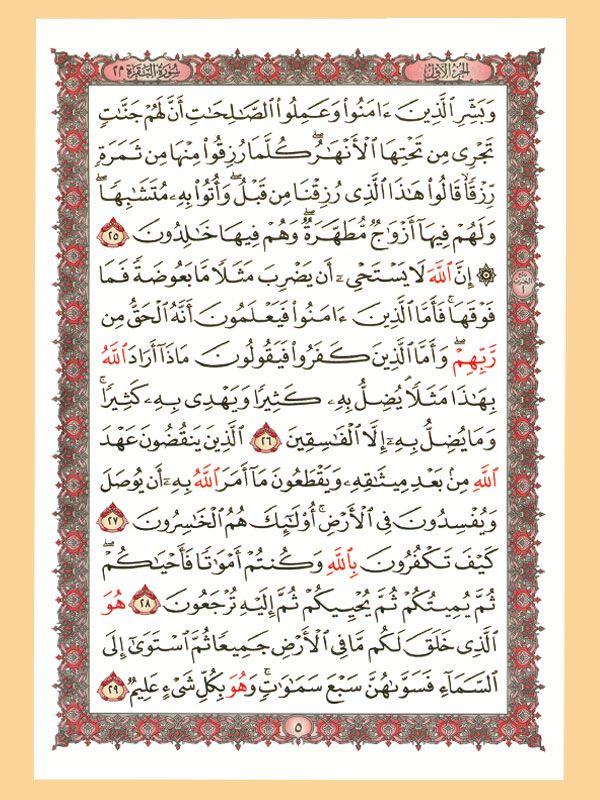 الجزء الأول
سورة البقرة ٢
وَبَشِّرِ الَّذِينَ ءَامَنُوا۟ وَعَمِلُوا۟ الصَّـٰلِحَـٰتِ أَنَّ لَهُمْ جَنَّـٰتٍ
تَجْرِى مِن تَحْتِهَا الْأَنْهَـٰرُ ۖ كُلَّمَا رُزِقُوا۟ مِنْهَا مِن ثَمَرَةٍ
رِّزْقًا ۙ قَالُوا۟ هَـٰذَا الَّذِى رُزِقْنَا مِن قَبْلُ ۖ وَأُتُوا۟ بِهِۦ مُتَشَـٰبِهًا ۖ
وَلَهُمْ فِيهَآ أَزْوَٰجٌ مُّطَهَّرَةٌ ۖ وَهُمْ فِيهَا خَـٰلِدُونَ ٢٥
۞ إِنَّ اللَّهَ لَا يَسْتَحْىِۦٓ أَن يَضْرِبَ مَثَلًا مَّا بَعُوضَةً فَمَا
فَوْقَهَا ۚ فَأَمَّا الَّذِينَ ءَامَنُوا۟ فَيَعْلَمُونَ أَنَّهُ الْحَقُّ مِن
رَّبِّهِمْ ۖ وَأَمَّا الَّذِينَ كَفَرُوا۟ فَيَقُولُونَ مَاذَآ أَرَادَ اللَّهُ
بِهَـٰذَا مَثَلًا ۘ يُضِلُّ بِهِۦ كَثِيرًا وَيَهْدِى بِهِۦ كَثِيرًا ۚ
وَمَا يُضِلُّ بِهِۦٓ إِلَّا الْفَـٰسِقِينَ ٢٦ الَّذِينَ يَنقُضُونَ عَهْدَ
اللَّهِ مِنۢ بَعْدِ مِيثَـٰقِهِۦ وَيَقْطَعُونَ مَآ أَمَرَ اللَّهُ بِهِۦٓ أَن يُوصَلَ
وَيُفْسِدُونَ فِى الْأَرْضِ ۚ أُو۟لَـٰٓئِكَ هُمُ الْخَـٰسِرُونَ ٢٧
كَيْفَ تَكْفُرُونَ بِاللَّهِ وَكُنتُمْ أَمْوَٰتًا فَأَحْيَـٰكُمْ ۖ
ثُمَّ يُمِيتُكُمْ ثُمَّ يُحْيِيكُمْ ثُمَّ إِلَيْهِ تُرْجَعُونَ ٢٨ هُوَ
الَّذِى خَلَقَ لَكُم مَّا فِى الْأَرْضِ جَمِيعًا ثُمَّ اسْتَوَىٰٓ إِلَى
السَّمَآءِ فَسَوَّىٰهُنَّ سَبْعَ سَمَـٰوَٰتٍ ۚ وَهُوَ بِكُلِّ شَىْءٍ عَلِيمٌ ٢٩
٥